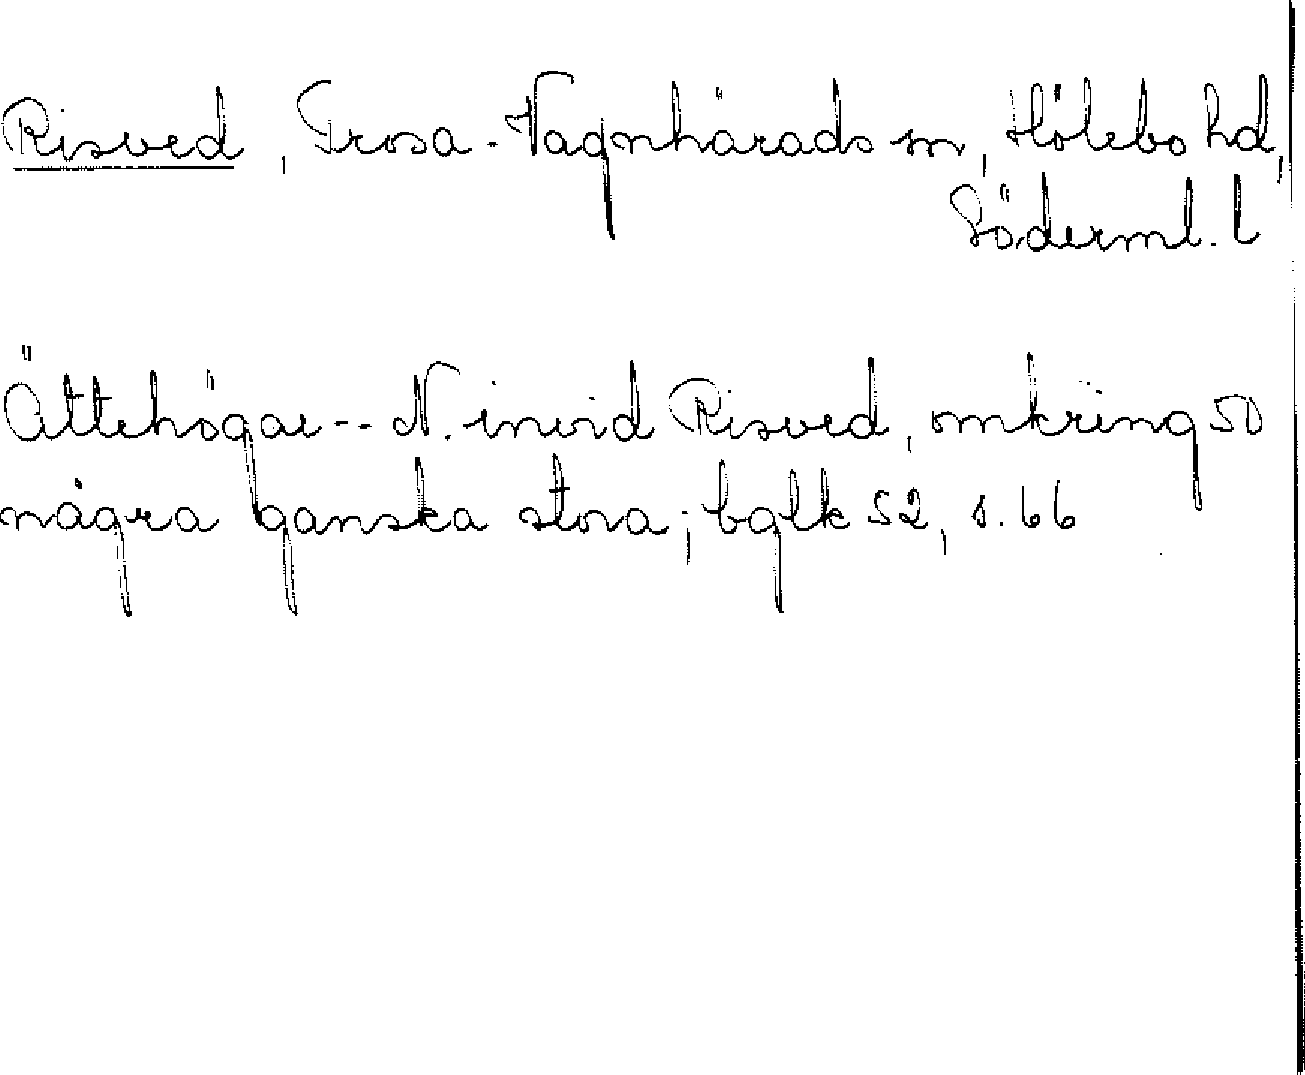 Risved, Trosa-Vagnhärads sn, Hölebo hd,
Söderml. l
Ättehögar -- N. invid Risved, omkring 50
några ganska stora; bglk 52, s. 66